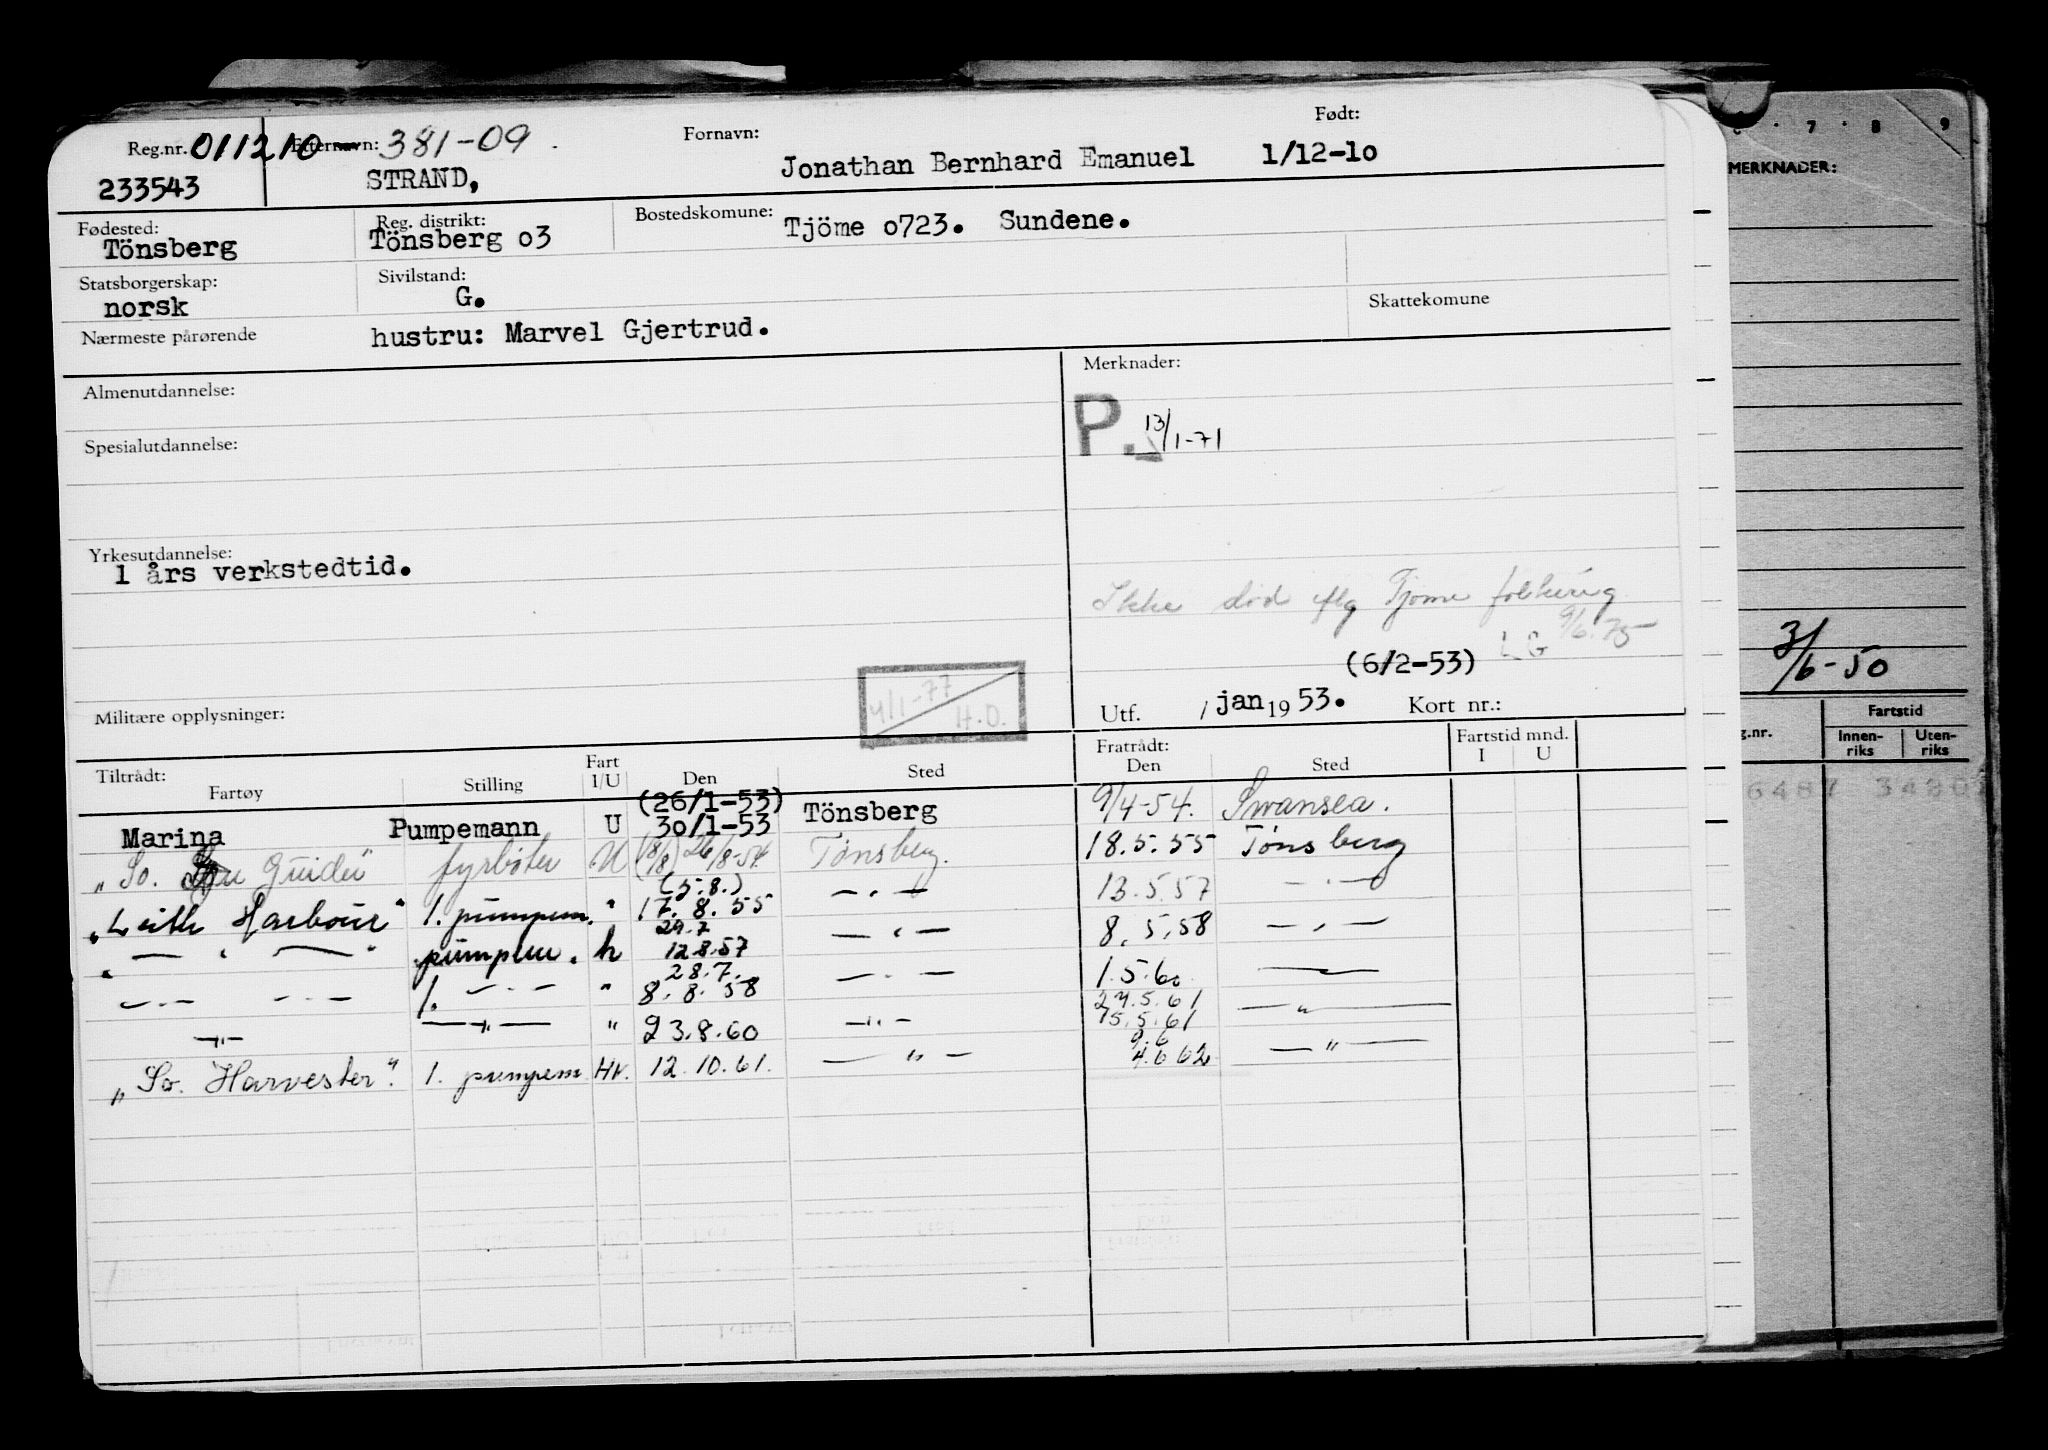 Reg.nr. 011210 Etternavn: 381-09 Fornavn: Født:
233543 STRAND, Jonathan Bernhard Emanuel 1/12-1o
Fødested: Reg. distrikt: Bostedskomune:
Tönsberg Tönsberg o3 Tjöme o723. Sundene.
Statsborgerskap: Sivilstand:
norsk G. Skattekomune
Nærmeste pårørende hustru: Marvel Gjertrud.
Almenutdannelse: Merknader:
P. 13/1-71
Spesialutdannelse:
Yrkesutdannelse:
1 års verkstedtid.
Ikke død iflg Tjøme folkereg
9/6.75
LG
(6/2-53)
4/1-77
H.O.
Militære opplysninger: Utf. / jan 19 53. Kort nr.:
Tiltrådt: Fratrådt: Fartstid mnd.
Fartøy Stilling Fart I/U Den Sted Den Sted I U
Marina Pumpemann U (26/1-53) 30/1-53 Tönsberg 9/4-54. Swansea.
"So. Guider" fyrbøter U (18/8) 26/8-54 Tönsberg. 18.5.55 Tönsberg
"Leith Harbour" 1. pumpem. " (5.8.) 17.8.55 — " — 13.5.57 — " —
" — " — " pumpem. h 29.7 12.8.57 — " — 8.5.58 — " —
— " — — " — 1. — " — " 28.7. 8.8.58 — " — 1.5.60 —
— " — — " — " 23.8.60 — " — 27.5.61 — " —
15.5.61
"So. Harvester". 1. pumpem Hv. 12.10.61. — " — 9.6 4.6 62 — " —
7 8 9
MERKNADER:
3/6-50
Fartstid
g.nr. Innen-riks Uten-riks